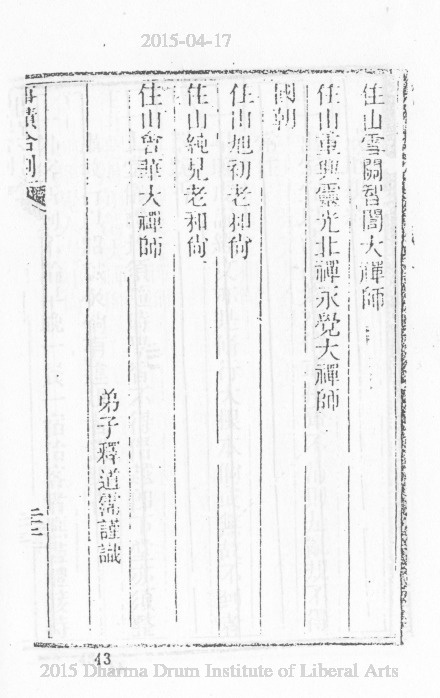 2015-04-17
住山雪關智誾大禪師
住山重興靈光北禪永覺大禪師
國朝
住山旭初老和尚
住山純兄老和尚
住山會華大禪師
弟子釋道霈謹識
43
2015 Dharma Drum Institute of Liberal Arts